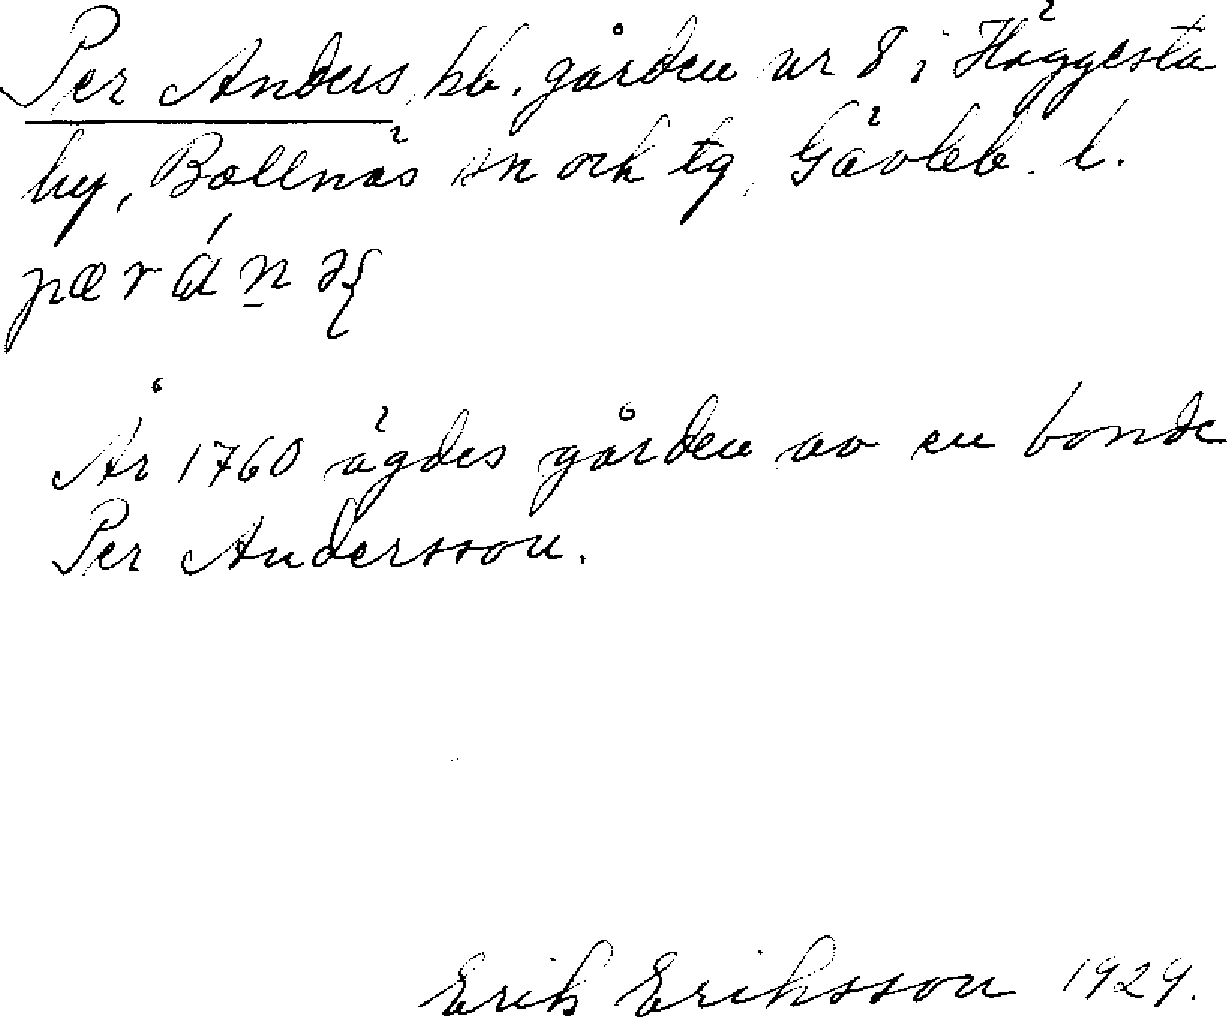 Per Anders, hb. gården nr 8 i Häggesta
by, Bollnäs sn och tg, Gävleb. l.
pær án ə
År 1760 ägdes gården av en bonde
Per Andersson.
Erik Eriksson 1929.